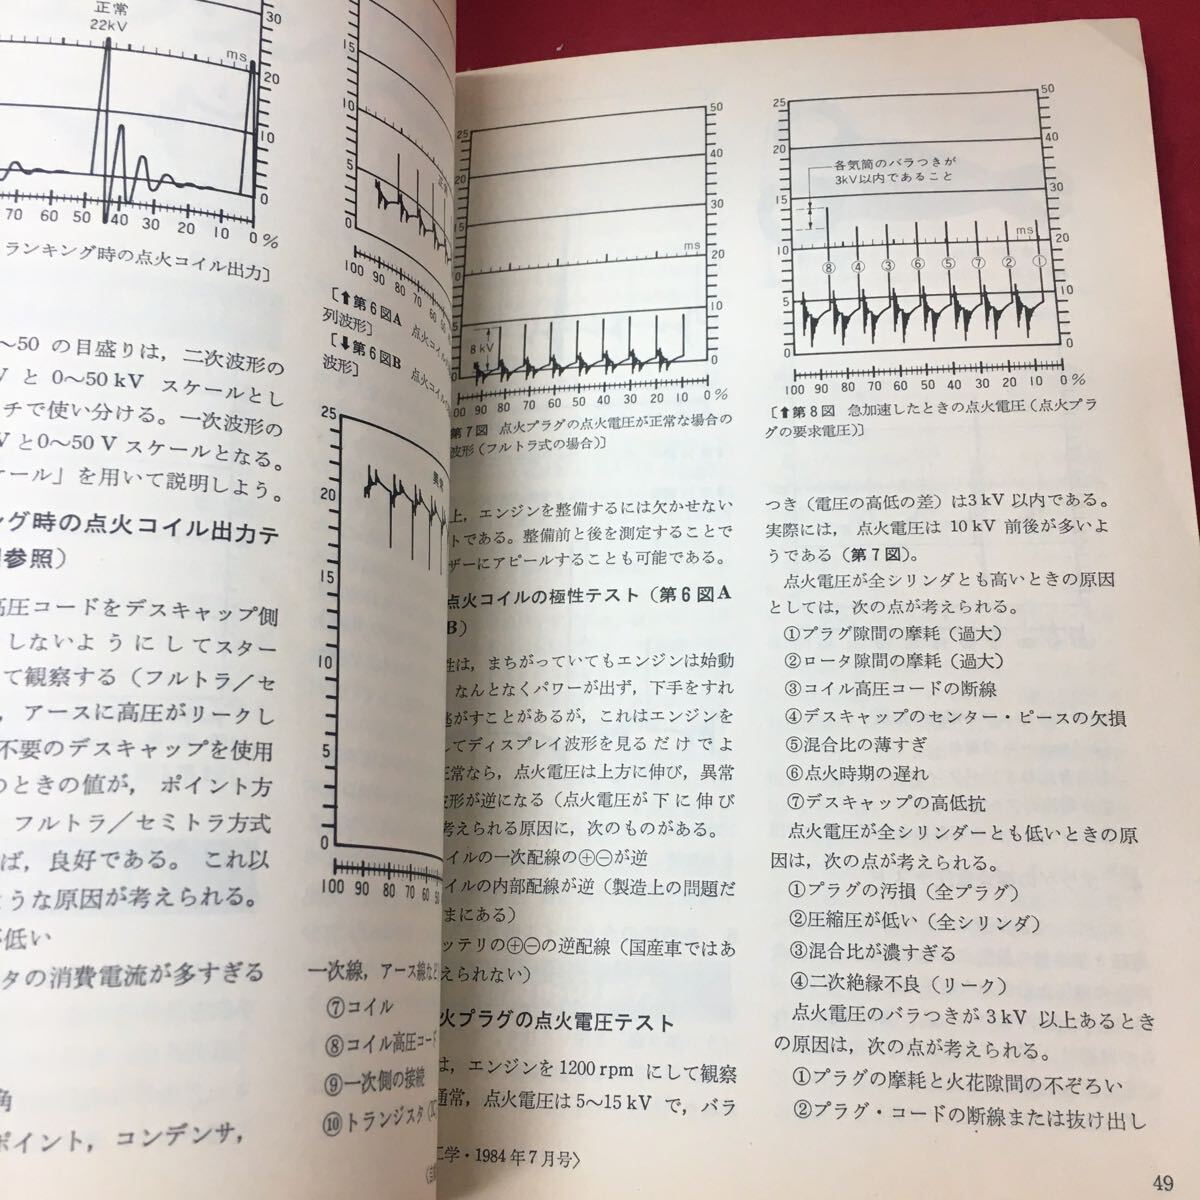 正常
22kV
30
ms
20
10
0
70 60 50 40 30 20 10 0%
ランキング時の点火コイル出力〕
～50 の目盛りは，二次波形の
V と 0～50 kV スケールとし
チで使い分ける。一次波形の
Vと0～50 V スケールとなる。
ケール」を用いて説明しよう。
ング時の点火コイル出力テ
参照）
高圧コードをデスキャップ側
しないようにしてスター
て観察する（フルトラ／セ
，アースに高圧がリークし
不要のデスキャップを使用
のときの値が， ポイント方
フルトラ／セミトラ方式
ば，良好である。 これ以
ような原因が考えられる。
が低い
タの消費電流が多すぎる
角
ポイント，コンデンサ，
15
10
5
0
正常
100 90 80 70 60 50
〔⬆第6図A 点火コイルの
列波形〕
〔⬇第6図B 点火コイルの
波形〕
25
20
15
10
5
0
異常
100 90 80 70 60 50
一次線，アース線など
⑦コイル
⑧コイル高圧コード
⑨一次側の接続
⑩トランジスタ
25
20
15
10
5
50
40
30
20
10
0
ms
8 kV
90 80 70 60 50 40 30 20 10 0 %
第7図 点火プラグの点火電圧が正常な場合の
波形（フルトラ式の場合）〕
上，エンジンを整備するには欠かせない
トである。整備前と後を測定することで
ザーにアピールすることも可能である。
点火コイルの極性テスト（第6図A
B）
性は，まちがっていてもエンジンは始動
なんとなくパワーが出ず，下手をすれ
逃がすことがあるが，これはエンジンを
してディスプレイ波形を見るだけでよ
正常なら，点火電圧は上方に伸び，異常
波形が逆になる（点火電圧が下に伸び
考えられる原因に，次のものがある。
イルの一次配線の⊕⊖が逆
イルの内部配線が逆（製造上の問題だ
まにある）
ッテリの⊕⊖の逆配線（国産車ではあ
えられない）
火プラグの点火電圧テスト
は，エンジンを1200 rpm にして観察
通常，点火電圧は 5～15 kV で，バラ
工学・1984年7月号〉
25
20
15
10
5
0
50
40
30
20
10
0
各気筒のバラつきが
3kV以内であること
ms
⑧ ④ ③ ⑥ ⑤ ⑦ ② ①
100 90 80 70 60 50 40 30 20 10 0 %
〔⬆第8図 急加速したときの点火電圧（点火プラ
グの要求電圧）〕
つき（電圧の高低の差）は3 kV 以内である。
実際には， 点火電圧は 10 kV 前後が多いよ
うである（第7図）。
点火電圧が全シリンダとも高いときの原因
としては，次の点が考えられる。
①プラグ隙間の摩耗（過大）
②ロータ隙間の摩耗（過大）
③コイル高圧コードの断線
④デスキャップのセンター・ピースの欠損
⑤混合比の薄すぎ
⑥点火時期の遅れ
⑦デスキャップの高低抗
点火電圧が全シリンダーとも低いときの原
因は，次の点が考えられる。
①プラグの汚損（全プラグ）
②圧縮圧が低い（全シリンダ）
③混合比が濃すぎる
④二次絶縁不良（リーク）
点火電圧のバラつきが 3 kV 以上あるとき
の原因は，次の点が考えられる。
①プラグの摩耗と火花隙間の不ぞろい
②プラグ・コードの断線または抜け出し
49